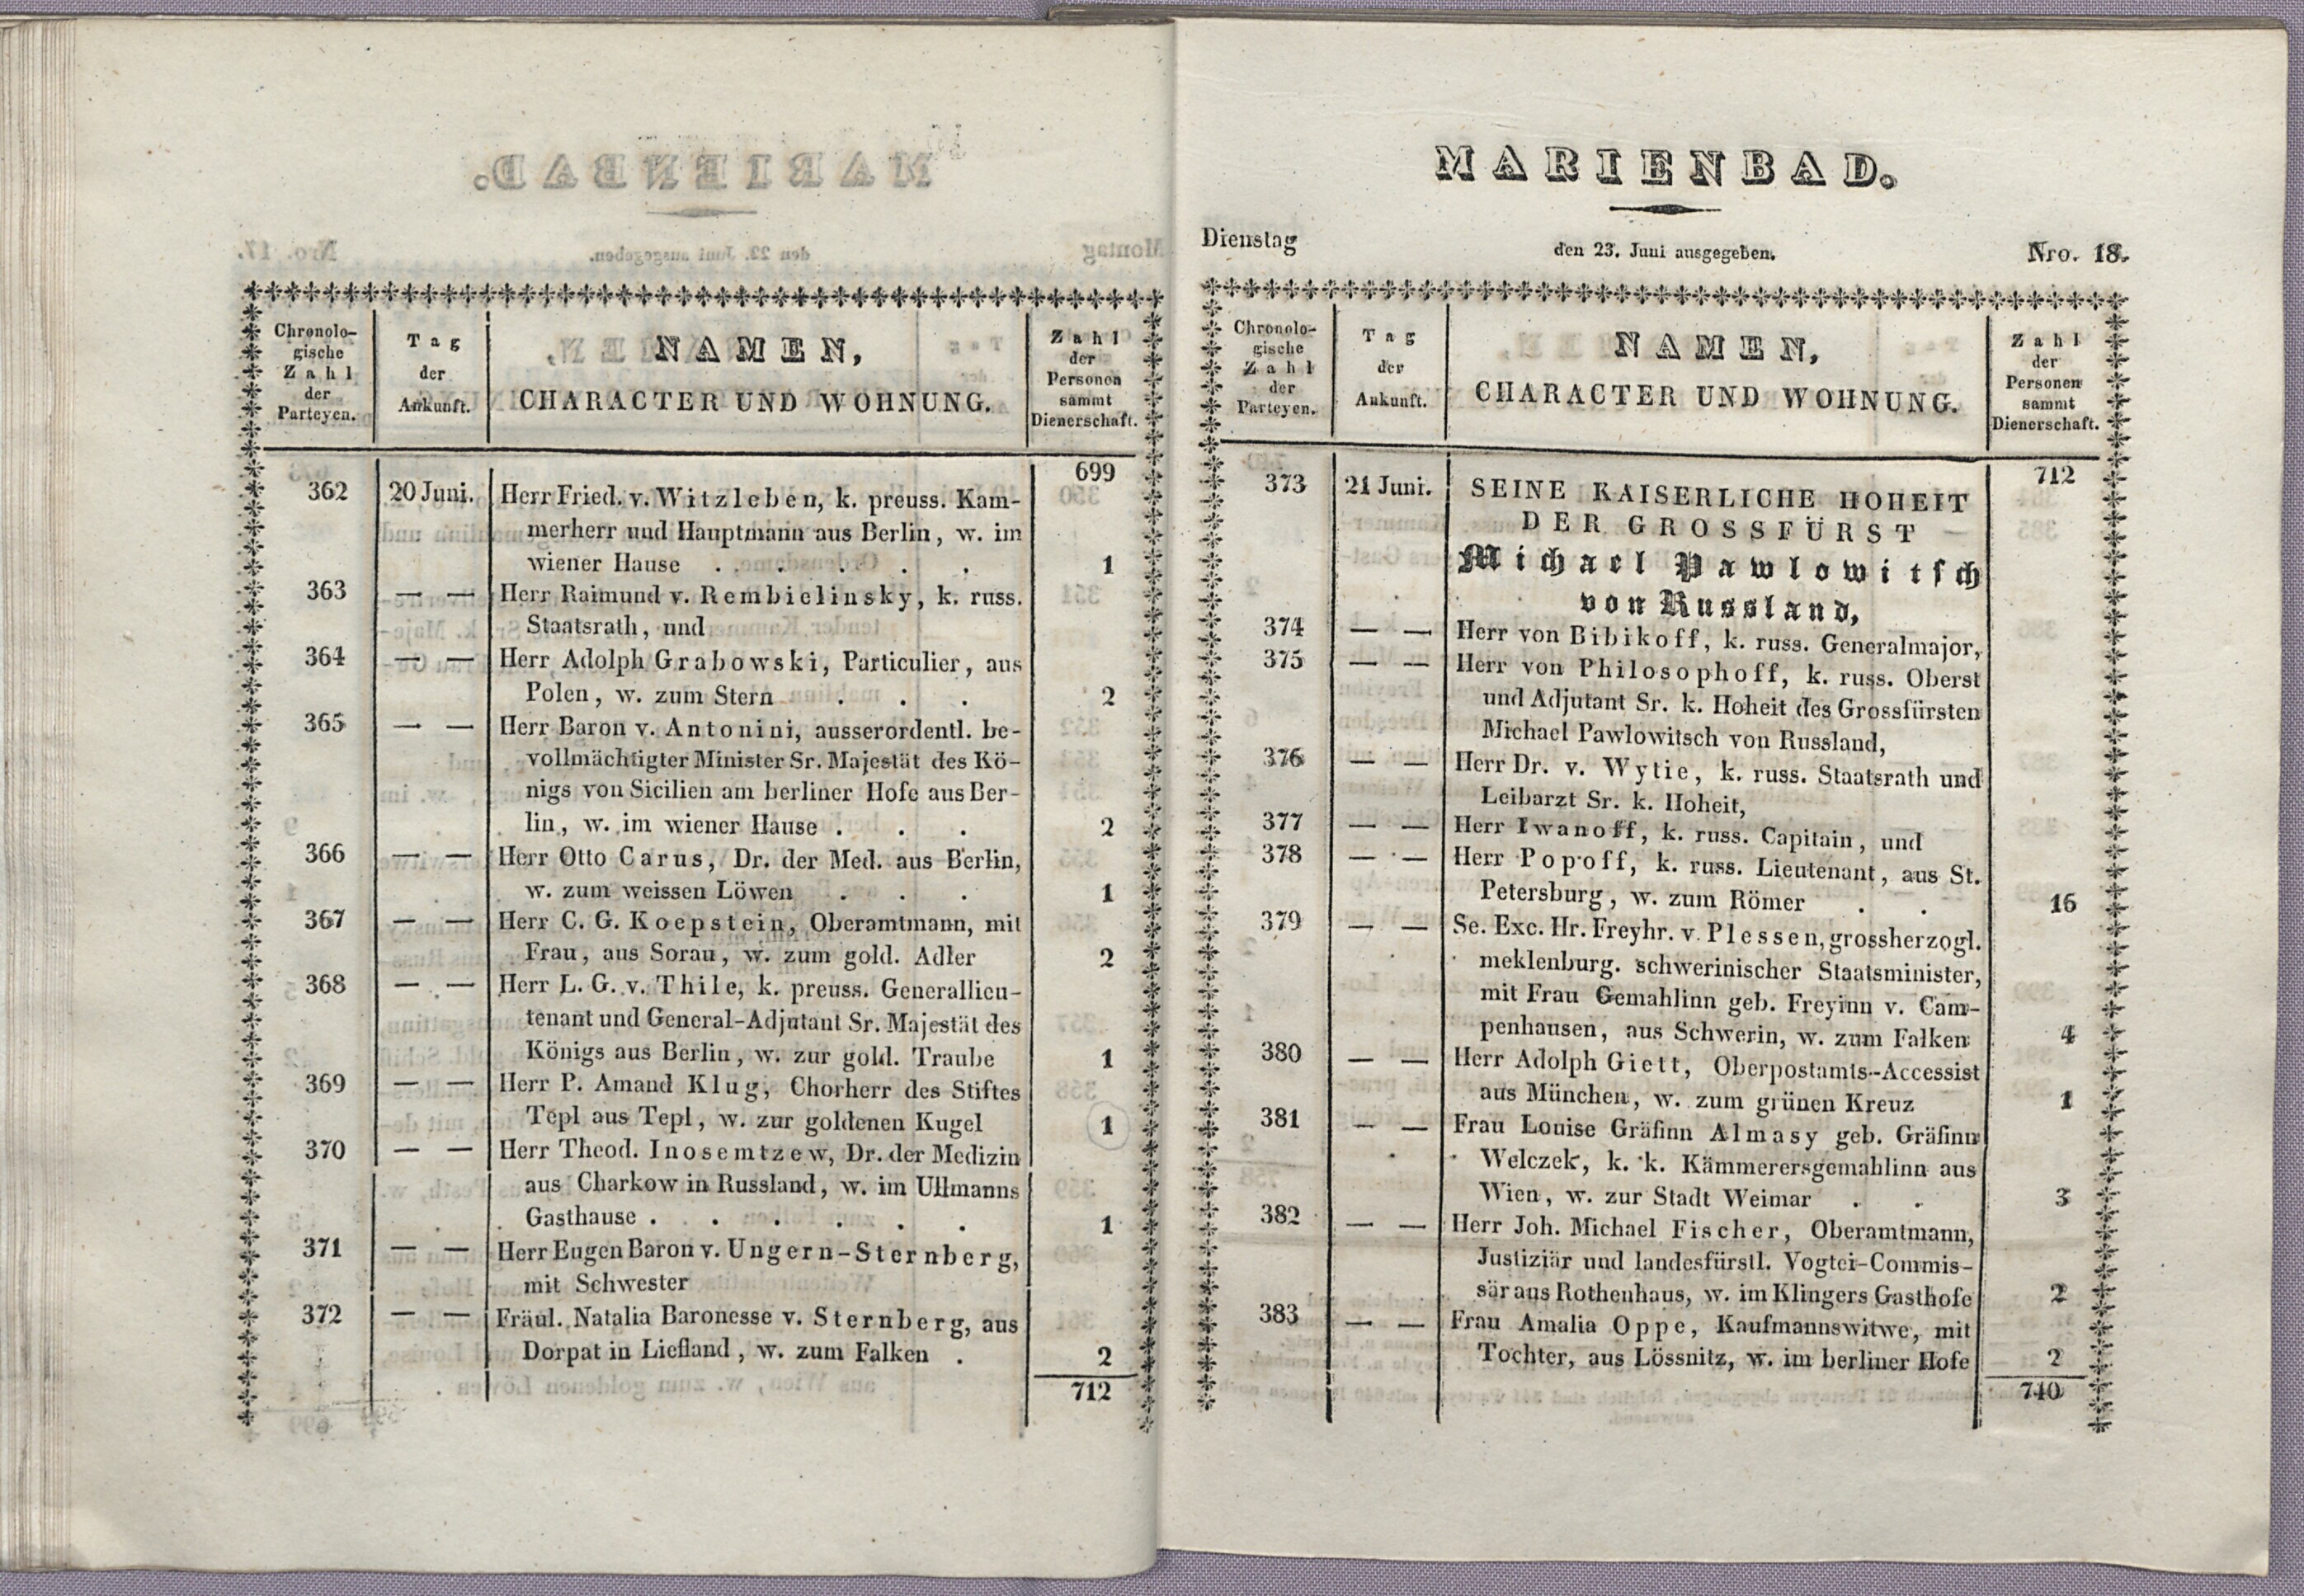 Chronolo-
gische
Zahl
der
Parteyen.
Tag
der
Ankunft.
NAMEN,
CHARACTER UND WOHNUNG.
Zahl
der
Personen
sammt
Dienerschaft.
699
362 20 Juni. Herr Fried. v. Witzleben, k. preuss. Kam-
merherr und Hauptmann aus Berlin, w. im
wiener Hause . . . . . 1
363 — — Herr Raimund v. Rembielinsky, k. russ.
Staatsrath, und
364 — — Herr Adolph Grabowski, Particulier, aus
Polen, w. zum Stern . . . 2
365 — — Herr Baron v. Antonini, ausserordentl. be-
vollmächtigter Minister Sr. Majestät des Kö-
nigs von Sicilien am berliner Hofe aus Ber-
lin, w. im wiener Hause . . . 2
366 — — Herr Otto Carus, Dr. der Med. aus Berlin,
w. zum weissen Löwen . . . 1
367 — — Herr C. G. Koepstein, Oberamtmann, mit
Frau, aus Sorau, w. zum gold. Adler 2
368 — — Herr L. G. v. Thile, k. preuss. Generallieu-
tenant und General-Adjutant Sr. Majestät des
Königs aus Berlin, w. zur gold. Traube 1
369 — — Herr P. Amand Klug, Chorherr des Stiftes
Tepl aus Tepl, w. zur goldenen Kugel 1
370 — — Herr Theod. Inosemtzew, Dr. der Medizin
aus Charkow in Russland, w. im Ullmanns
Gasthause . . . . . . 1
371 — — Herr Eugen Baron v. Ungern-Sternberg,
mit Schwester
372 — — Fräul. Natalia Baronesse v. Sternberg, aus
Dorpat in Liefland, w. zum Falken . 2
712
MARIENBAD.
Dienstag den 23. Juni ausgegeben. Nro. 18.
Chronolo-
gische
Zahl
der
Parteyen.
Tag
der
Ankunft.
NAMEN,
CHARACTER UND WOHNUNG.
Zahl
der
Personen
sammt
Dienerschaft.
712
373 21 Juni. SEINE KAISERLICHE HOHEIT
DER GROSSFÜRST
Michael Pawlowitsch
von Russland,
374 — — Herr von Bibikoff, k. russ. Generalmajor,
375 — — Herr von Philosophoff, k. russ. Oberst
und Adjutant Sr. k. Hoheit des Grossfürsten
Michael Pawlowitsch von Russland,
376 — — Herr Dr. v. Wytie, k. russ. Staatsrath und
Leibarzt Sr. k. Hoheit,
377 — — Herr Iwanoff, k. russ. Capitain, und
378 — — Herr Popoff, k. russ. Lieutenant, aus St.
Petersburg, w. zum Römer . . 16
379 — — Se. Exc. Hr. Freyhr. v. Plessen, grossherzogl.
meklenburg. schwerinischer Staatsminister,
mit Frau Gemahlinn geb. Freyinn v. Cam-
penhausen, aus Schwerin, w. zum Falken 4
380 — — Herr Adolph Giett, Oberpostamts-Accessist
aus München, w. zum grünen Kreuz 1
381 — — Frau Louise Gräfinn Almasy geb. Gräfinn
Welczek, k. k. Kämmerersgemahlinn aus
Wien, w. zur Stadt Weimar . . 3
382 — — Herr Joh. Michael Fischer, Oberamtmann,
Justiziär und landesfürstl. Vogtei-Commis-
sär aus Rothenhaus, w. im Klingers Gasthofe 2
383 — — Frau Amalia Oppe, Kaufmannswitwe, mit
Tochter, aus Lössnitz, w. im berliner Hofe 2
740